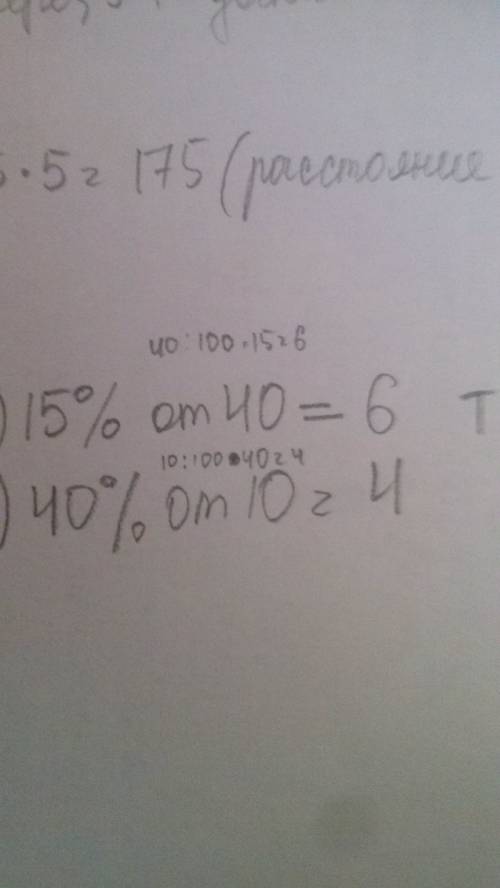 · 5 = 175 (расстояние
40 : 100 · 15 = 6
) 15% от 40 = 6 т
10 : 100 · 40 = 4
) 40% от 10 = 4